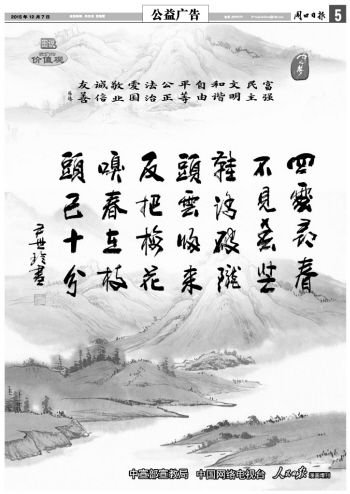 2015年12月7日
公益广告
周口日报
5
价值观
富强
民主
文明
和谐
自由
平等
公正
法治
爱国
敬业
诚信
友善
四處尋春
不見春芒
鞋踏破隴
頭雲歸來
反把梅花
嗅春在枝
頭已十分
中宣部宣教局 中国网络电视台 人民日报